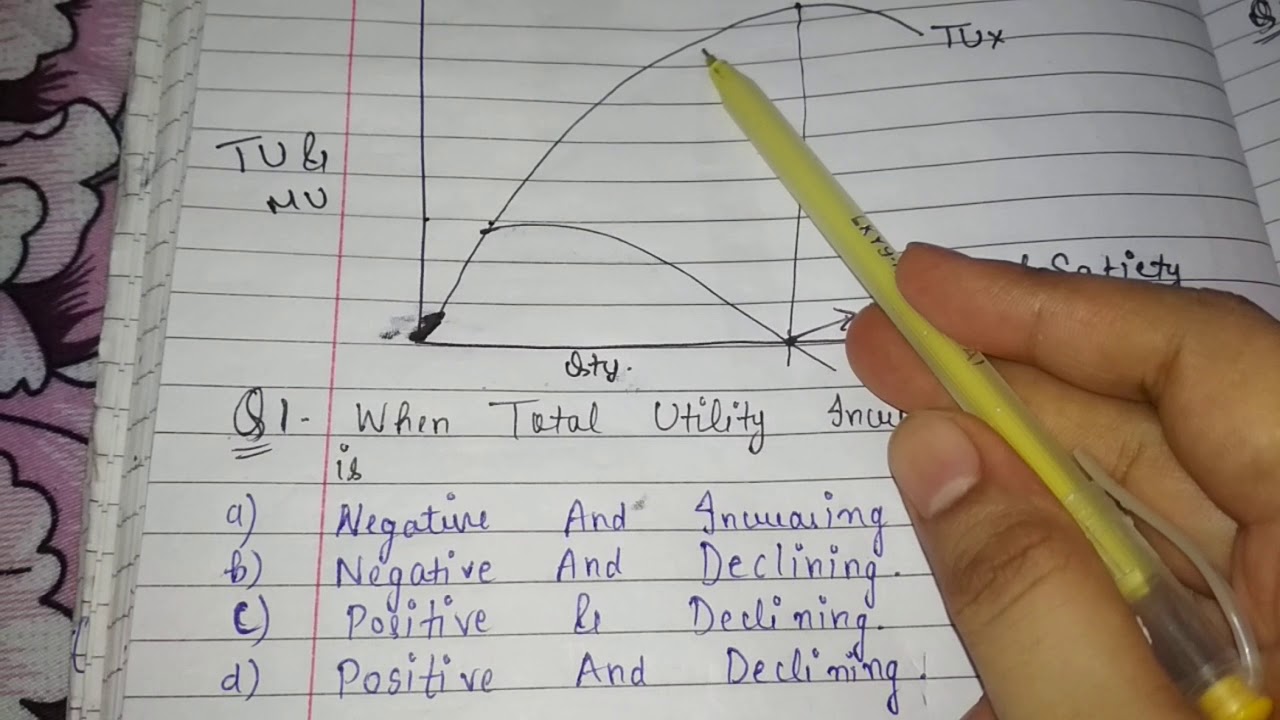 TUx
TU &
MU
Satiety
Qty.
Q1- When Total Utility
is
a) Negative And Increasing
b) Negative And Declining.
c) Positive & Declining.
d) Positive And Declining